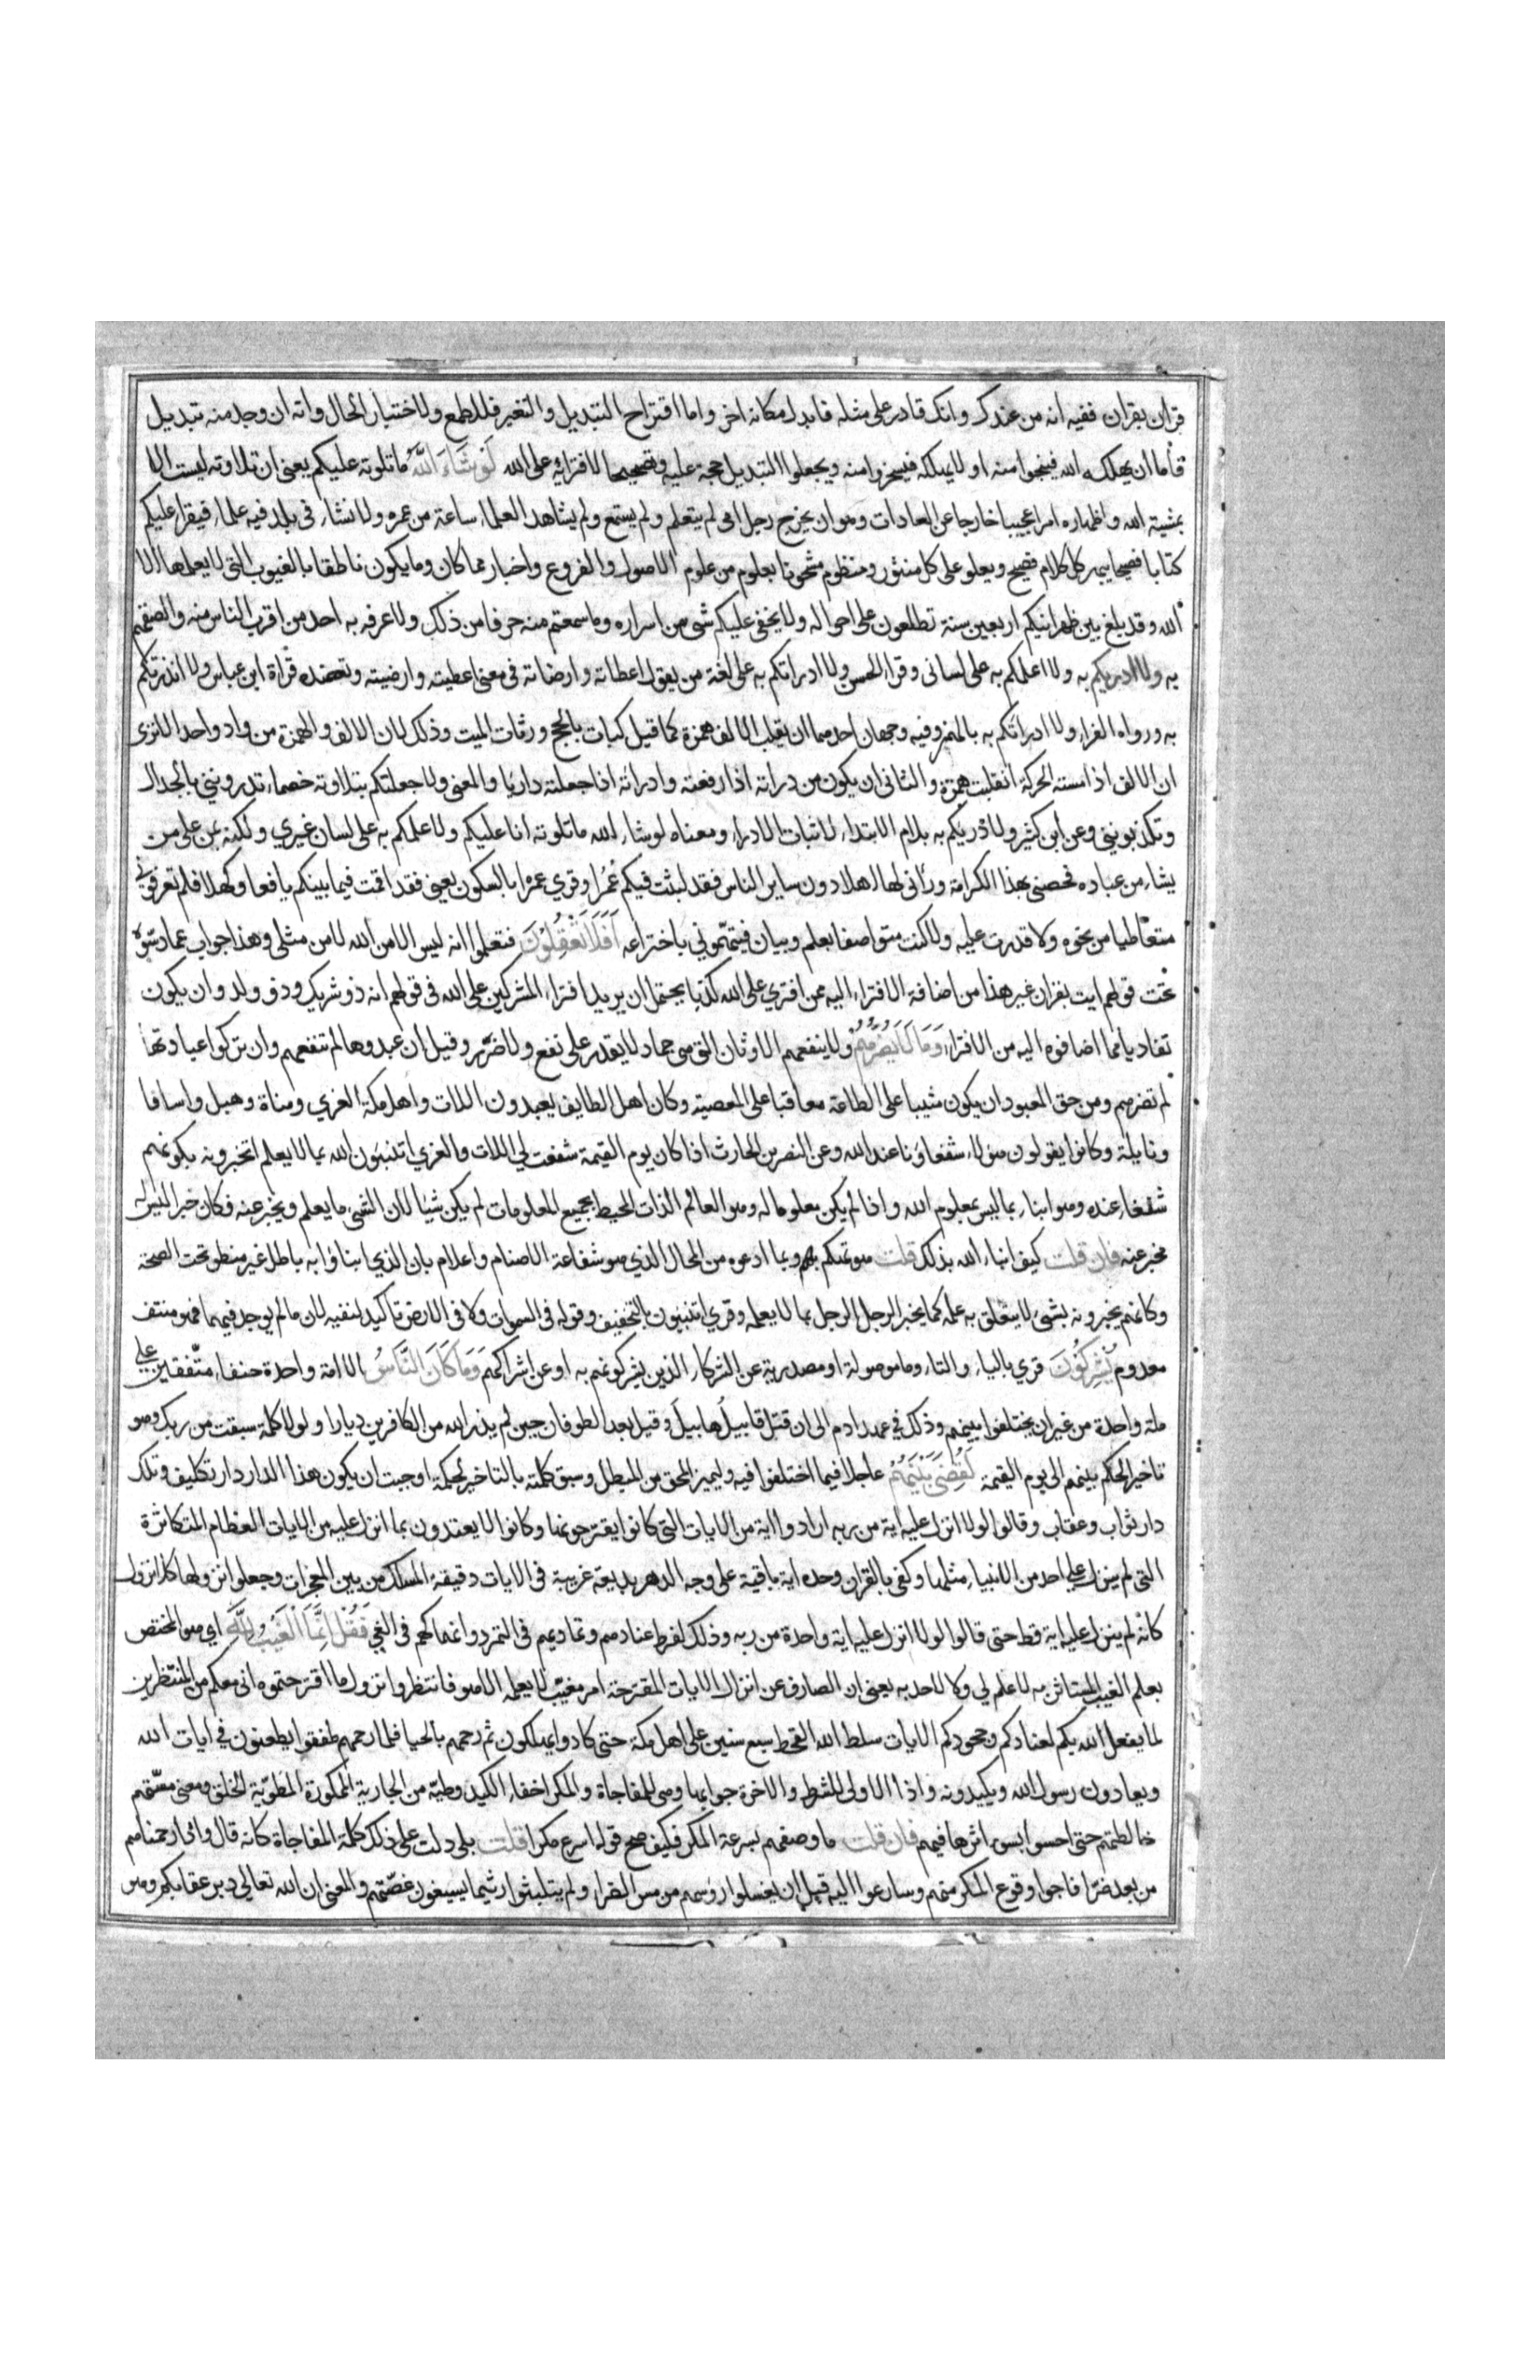 قران بقران ففيه انه من عندك وانك قادر على مثله فابدل مكانه اخر واما اقتراح التبديل والتغير فللطمع ولاختبار الحال وانه ان وجد منه تبديل
فأما ان يهلكه الله فينجوا منه او لا يهلكه فيسخروا منه ويجعلوا التبديل حجة عليه وتصحيحا لافترائه على الله لَوْ شَاءَ اللَّهُ ما تلوته عليكم يعنى ان تلاوته ليست الا
بمشية الله واظهاره امرا عجيبا خارجا عن العادات وهو ان يخرج رجل امى لم يتعلم ولم يستمع ولم يشاهد العلماء ساعة من عمره ولا نشاء فى بلد فيه علماء فيقرا عليكم
كتابا فصيحا يبهر كل كلام فصيح ويعلو على كل منثور ومنظوم مشحونا بعلوم من علوم الاصول والفروع واخبار مما كان وما يكون ناطقا بالغيوب التى لا يعلمها الا
الله وقد بلغ بين ظهرانيكم اربعين سنة تطلعون على احواله ولا يخفى عليكم شى من اسراره وما سمعتم منه حرفا من ذلك ولا عرفه به احد من اقرب الناس منه والصقهم
به ولا ادريكم به ولا اعلمكم به على لسانى وقرا الحسن ولا ادراتكم به على لغة من يقول اعطاته وارضاته فى معنى اعطيته وارضيته وتعضده قراة ابن عباس ولا انذرتكم
به ورواه الفراء ولا ادراتكم به بالهمز وفيه وجهان احدهما ان يقلب الالف همزة كما قيل لبات بالحج ورثات الميت وذلك لان الالف والهمزة من واد واحد الا ترى
ان الالف اذا مسته الحركة انقلبت همزة والثانى ان يكون من دراته اذا رفعته وادراته اذا جعلته داريا والمعنى ولا جعلتكم بتلاوته خصماء تدروننى بالجدال
وتكذبوننى وعن ابن كثير ولادريكم به بلام الابتداء لاثبات الادراء ومعناه لو شاء الله ما تلوته انا عليكم ولاعلمكم به على لسان غيري ولكنه يمن على من
يشاء من عباده فخصنى بهذا الكرامة ورانى لها اهلا دون ساير الناس فقد لبثت فيكم عُمُرا وقري عمرا بالسكون يعنى فقد اقمت فيما بينكم يافعا وكهلا فلم تعرفونى
متعاطيا من نحوه ولا قدرت عليه ولا كنت متواصفا بعلم وبيان فتتهمونى باختراعه اَفَلَا تَعْقِلُوْنَ فتعلموا انه ليس الا من الله لا من مثلى وهذا جواب عما دسّوه
تحت قولهم ايت بقران غير هذا من اضافة الافتراء اليه ممن افتري على الله كذبا يحتمل ان يريد افتراء المشركين على الله فى قولهم انه ذو شريك وذو ولد وان يكون
تفاديا مما اضافوه اليه من الافتراء وَمَا لَا يَضُرُّهُمْ ولا ينفعهم الاوثان التى هى جماد لا يقدر على نفع ولا ضرّ وقيل ان عبدوها لم تنفعهم وان تركوا عبادتها
لم تضرهم ومن حق المعبود ان يكون مثيبا على الطاعة معاقبا على المعصية وكان اهل الطايف يعبدون اللات واهل مكة العزي ومناة وهبل واسافا
ونايلة وكانوا يقولون هولاء شفعاؤنا عند الله وعن النضر بن الحارث اذا كان يوم القيمة شفعت لى اللات والعزي اتنبئون الله بما لا يعلم اتخبرونه بكونهم
شفعاء عنده وهو انباء بما ليس بمعلوم الله واذا لم يكن معلوما له وهو العالم الذات المحيط بجميع المعلومات لم يكن شيا لان الشى ما يعلم ويخبر عنه فكان خبرا ليس له
مخبر عنه فان قلت كيف انباء الله بذلك قلت هو تهكم بهم وبما ادعوه من المحال الذي هو شفاعة الاصنام واعلام بان الذي انباؤا به باطل غير منطو تحت الصحة
وكانهم يخبرونه بشى لا يتعلق به علمه كما يخبر الرجل الرجل بما لا يعلمه وقري اتنبئون بالتخفيف وقوله فى السموات ولا فى الارض تاكيد لنفيه لان ما لم يوجد فيهما فهو منتف
معدوم يُشْرِكُوْنَ قري بالياء والتاء وما موصولة او مصدرية عن الشركاء الذين يشركونهم به او عن اشراكهم وَمَا كَانَ النَّاسُ الا امة واحدة حنفاء متّفقين على
ملة واحدة من غير ان يختلفوا بينهم وذلك فى عهد ادم الى ان قتل قابيل هابيل وقيل بعد الطوفان حين لم يذر الله من الكافرين ديارا ولولا كلمة سبقت من ربك وهو
تاخير الحكم بينهم الى يوم القيمة لَقُضِيَ بَيْنَهُمْ عاجلا فيما اختلفوا فيه وليميز المحق من المبطل وسبق كلمته بالتاخير لحكمة اوجبت ان يكون هذا الدار دار تكليف وتلك
دار ثواب وعقاب وقالوا لولا انزل عليه اية من ربه ارادوا اية من الايات التى كانوا يقترحونها وكانوا لا يعتدون بما انزل عليه من الايات العظام المتكاثرة
التى لم ينزل على احد من الانبياء مثلها وكفى بالقران وحده اية باقية على وجه الدهر بديعة غريبة فى الايات دقيقة المسلك من بين المعجزات وجعلوا نزولها كلا نزول
كانه لم ينزل عليه اية قط حتى قالوا لولا انزل عليه اية واحدة من ربه وذلك لفرط عنادهم وتماديهم فى التمرد وانهماكهم فى الغى فَقُلْ اِنَّمَا الْغَيْبُ لِلَّهِ اي هو المختص
بعلم الغيب المستاثر به لا علم لى ولا لاحد به يعنى ان الصارف عن انزال الايات المقترحة امر مغيّب لا يعلمه الا هو فانتظروا نزول ما اقترحتموه انى معكم من المنتظرين
لما يفعل الله بكم لعنادكم وجحودكم الايات سلط الله القحط سبع سنين على اهل مكة حتى كادوا يهلكون ثم رحمهم بالحيا فلما رحمهم طفقوا يطعنون فى ايات الله
ويعادون رسول الله ويكيدونه واذا الاولى للشرط والاخرة جوابها وهى للمفاجاة والمكر اخفاء الكيد وطيّه من الجارية الممكورة المطويّة الخلق ومعنى مسّتهم
خالطتهم حتى احسوا بسوء اثرها فيهم فان قلت ما وصفهم بسرعة المكر فكيف صح قوله اسرع مكرا قلت بلى دلت على ذلك كلمة المفاجاة كانه قال واذا رحمناهم
من بعد ضرّا فاجوا وقوع المكر منهم وسارعوا اليه قبل ان يغسلوا رؤسهم من مس الضراء ولم يتلبثوا ريثما يسيغون غصّتهم والمعنى ان الله تعالى دبر عقابكم وهو